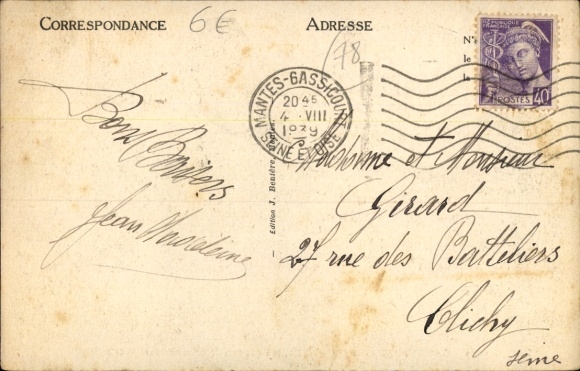 CORRESPONDANCE
6€
ADRESSE
78
N°
le
le
RÉPUBLIQUE FRANÇAISE
POSTES 40
MANTES-GASSICOURT
20 45
4 · VIII
1939
SEINE ET OISE
Bons Baisers
Jean Madeleine
— Édition J. Benière,
Madame et Monsieur
Girard
27 rue des Batteliers
Clichy
Seine